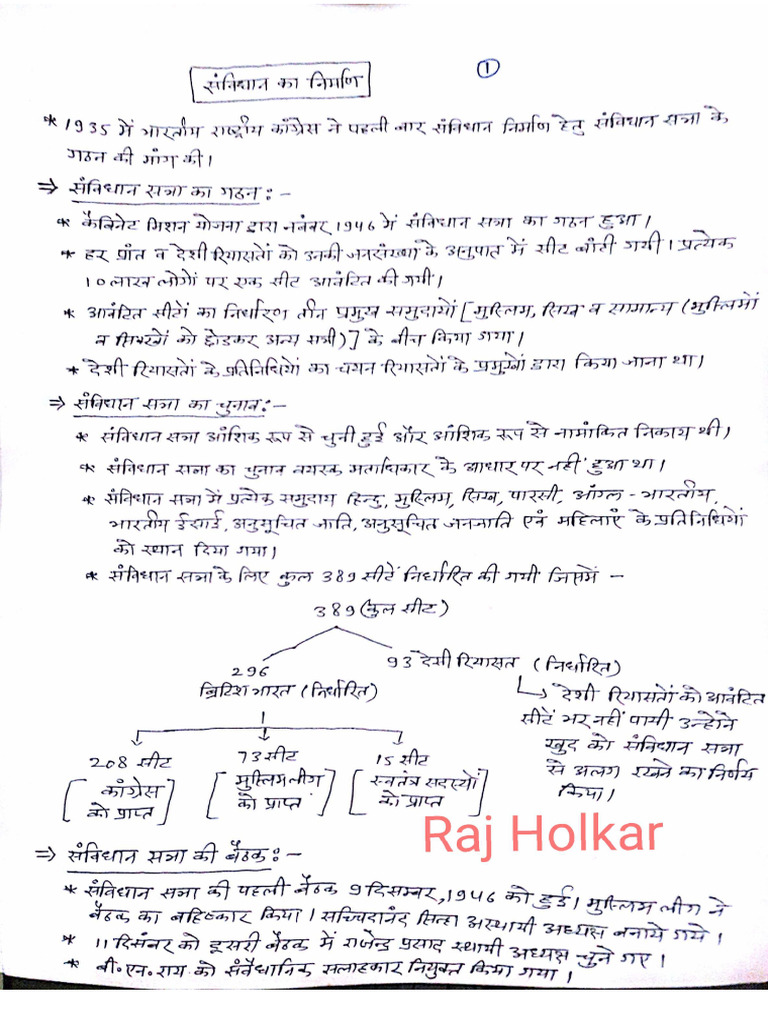 ①
संविधान का निर्माण
* 1935 में भारतीय राष्ट्रीय काँग्रेस ने पहली बार संविधान निर्माण हेतु संविधान सभा के
गठन की मांग की।
⇒ संविधान सभा का गठन :-
* कैबिनेट मिशन योजना द्वारा नवंबर 1946 में संविधान सभा का गठन हुआ।
* हर प्रांत व देशी रियासतों को उनकी जनसंख्या के अनुपात में सीट बाँटी गयी। प्रत्येक
10 लाख लोगों पर एक सीट आवंटित की गयी।
* आवंटित सीटों का निर्धारण तीन प्रमुख समुदायों [मुस्लिम, सिख व सामान्य (मुस्लिमों
व सिक्खों को छोडकर अन्य सभी)] के बीच किया गया।
* देशी रियासतों के प्रतिनिधियों का चयन रियासतों के प्रमुखों द्वारा किया जाना था।
⇒ संविधान सभा का चुनाव :-
* संविधान सभा आंशिक रूप से चुनी हुई और आंशिक रूप से नामांकित निकाय थी।
* संविधान सभा का चुनाव वयस्क मताधिकार के आधार पर नहीं हुआ था।
* संविधान सभा में प्रत्येक समुदाय हिन्दु, मुस्लिम, सिख, पारसी, आंग्ल - भारतीय,
भारतीय ईसाई, अनुसूचित जाति, अनुसूचित जनजाति एवं महिलाएं के प्रतिनिधियों
को स्थान दिया गया।
* संविधान सभा के लिए कुल 389 सीटें निर्धारित की गयी जिसमें -
389 (कुल सीट)
296
ब्रिटिश भारत (निर्धारित)
93 देशी रियासत (निर्धारित)
↳ देशी रियासतों को आवंटित
सीटें भर नहीं पायी उन्होंने
खुद को संविधान सभा
से अलग रखने का निर्णय
किया।
208 सीट
[काँग्रेस
को प्राप्त]
73 सीट
[मुस्लिम लीग
को प्राप्त]
15 सीट
[स्वतंत्र सदस्यों
को प्राप्त]
Raj Holkar
⇒ संविधान सभा की बैठक :-
* संविधान सभा की पहली बैठक 9 दिसम्बर, 1946 को हुई। मुस्लिम लीग ने
बैठक का बहिष्कार किया। सच्चिदानंद सिन्हा अस्थायी अध्यक्ष बनाये गये।
* 11 दिसंबर को दूसरी बैठक में राजेन्द्र प्रसाद स्थायी अध्यक्ष चुने गए।
* बी. एन. राय को संवैधानिक सलाहकार नियुक्त किया गया।